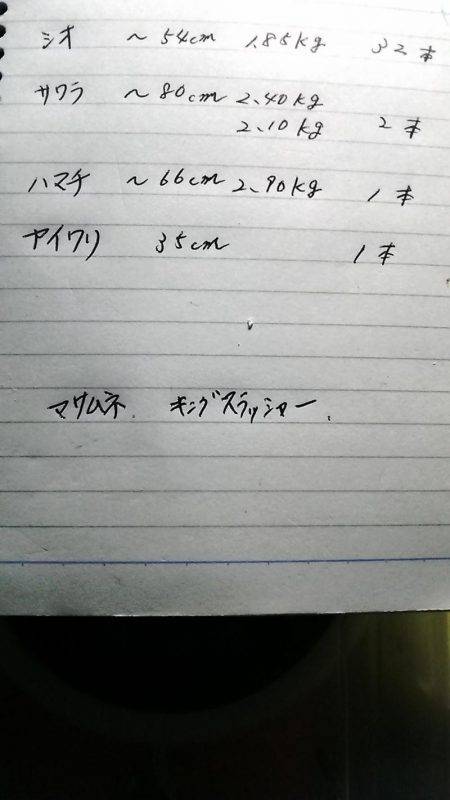 シオ ～54cm 1.85kg 32本
サワラ ～80cm 2.40kg
2.10kg 2本
ハマチ ～66cm 2.90kg 1本
ヤイワリ 35cm 1本
マサムネ. キングスラッシャー.